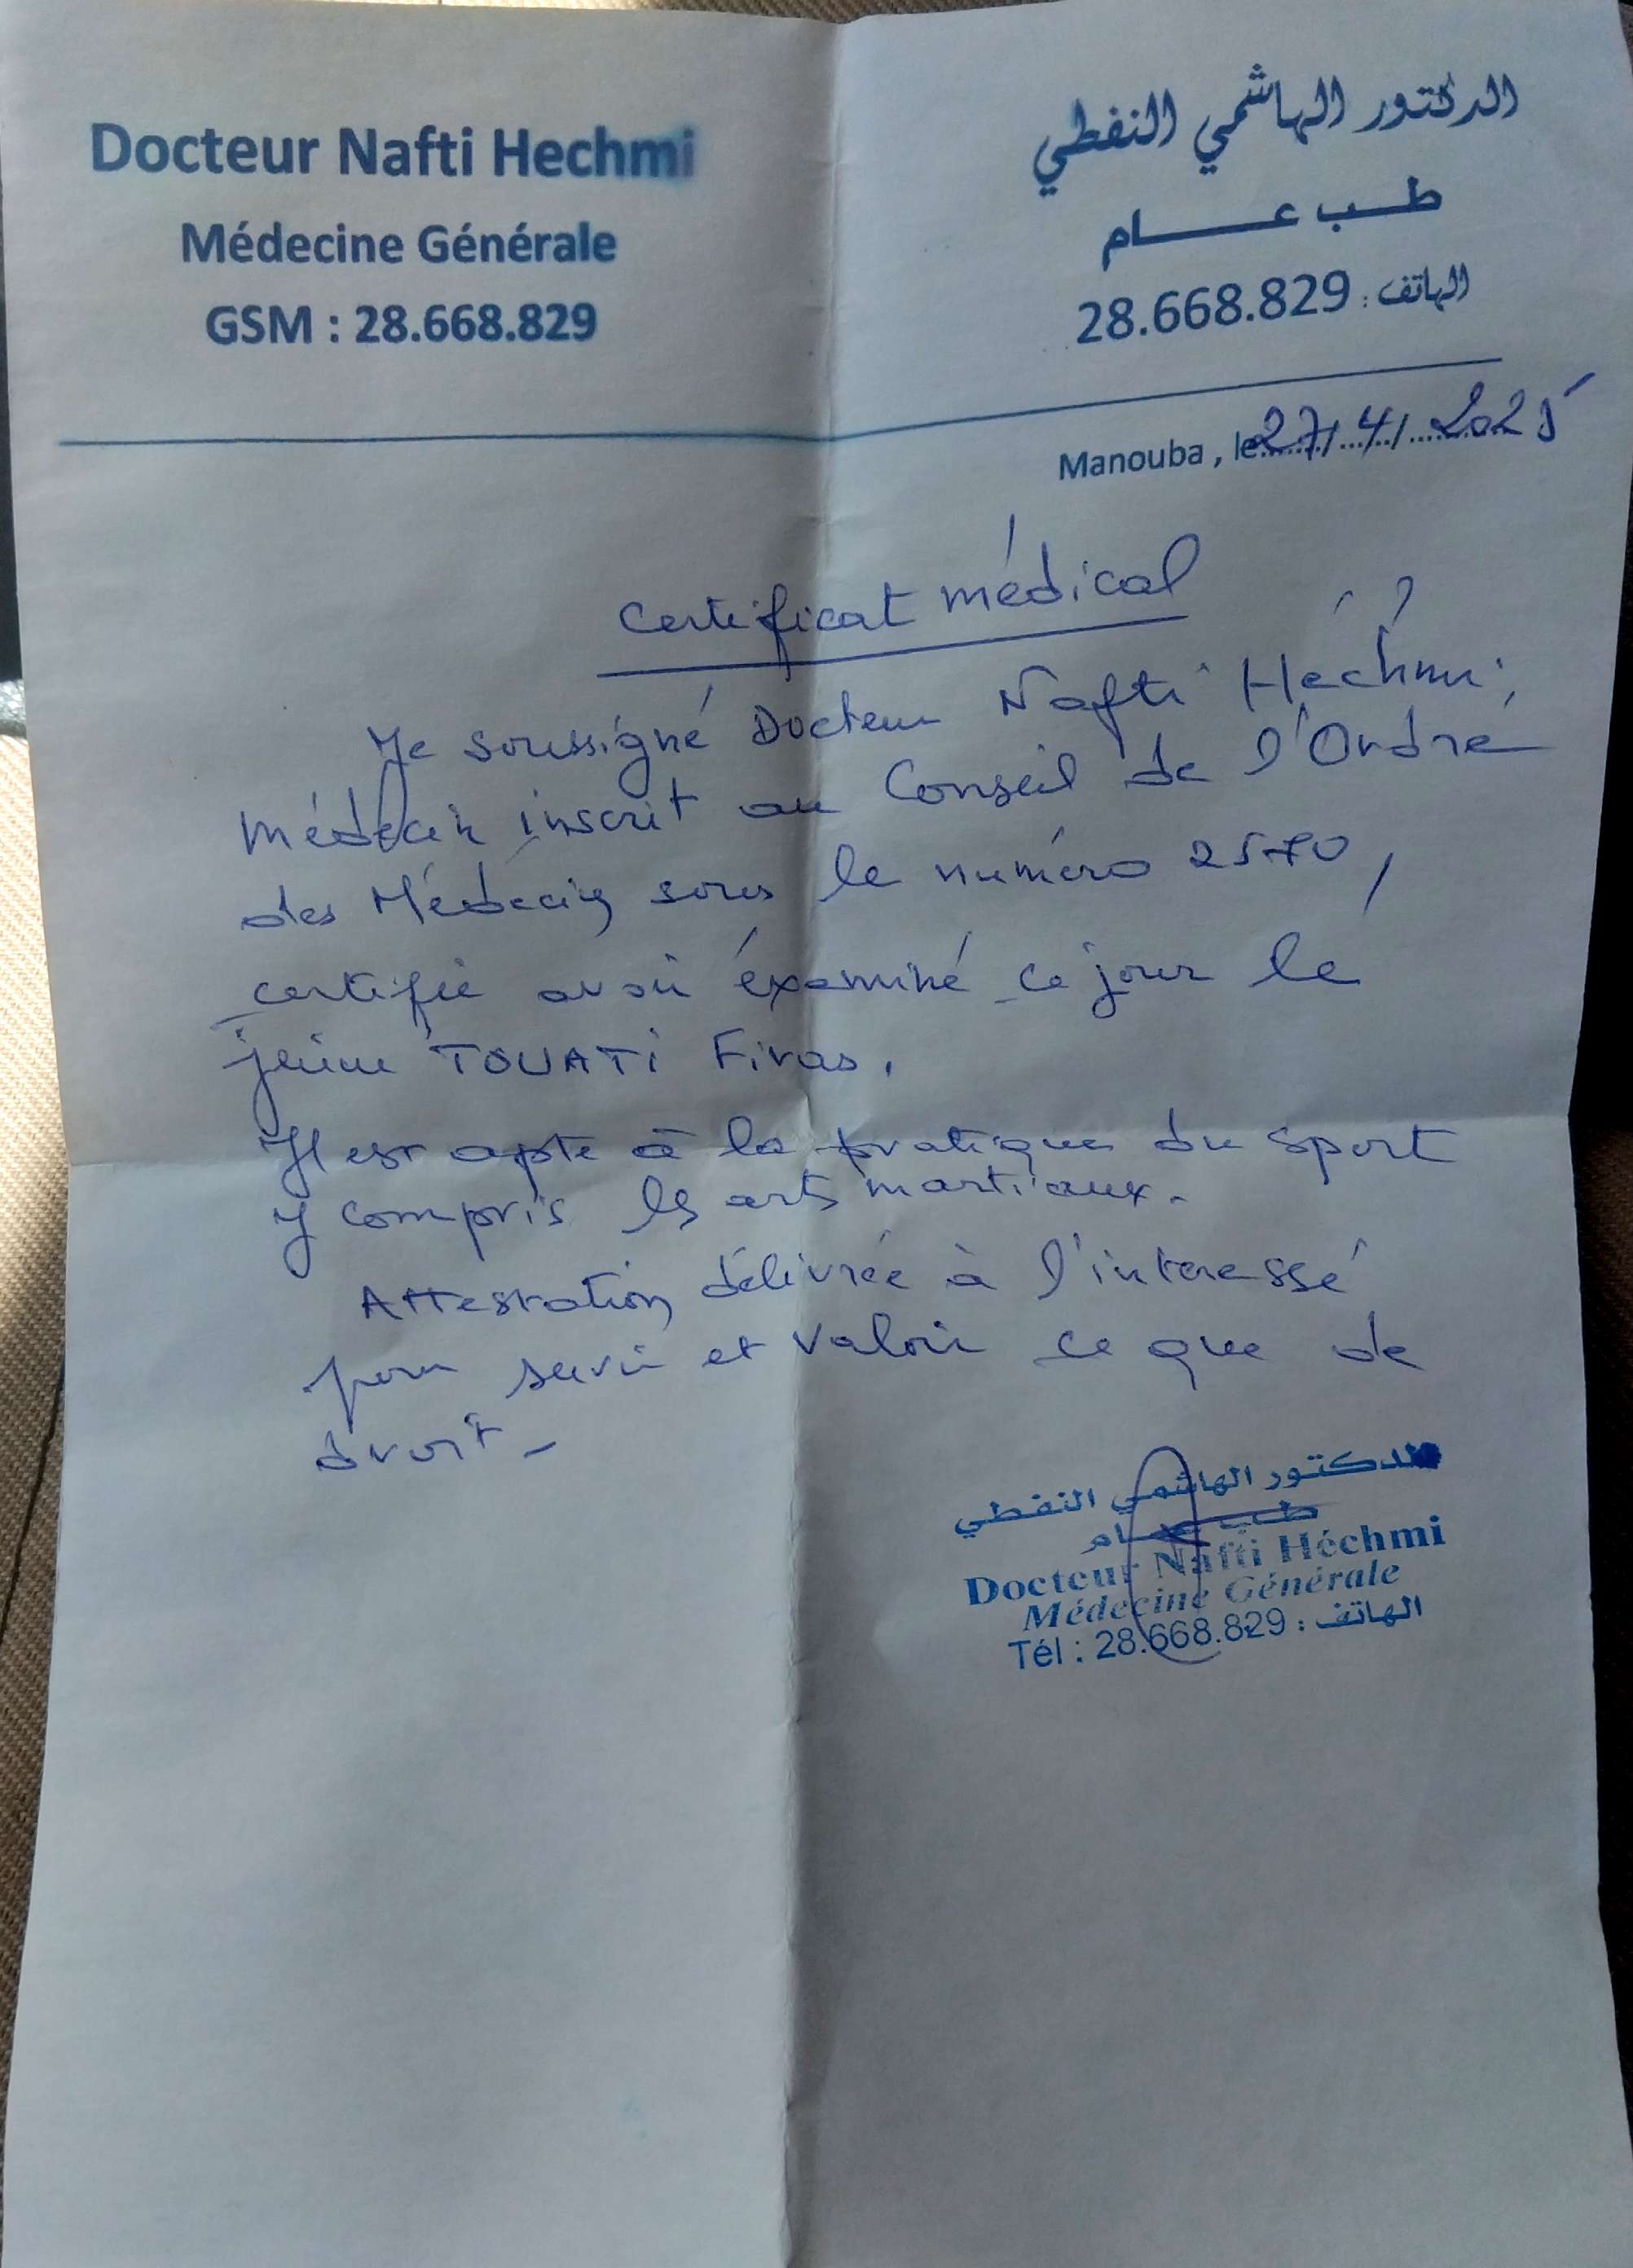 Docteur Nafti Hechmi
Médecine Générale
GSM : 28.668.829
الدكتور الهاشمي النفطي
طب عام
الهاتف : 28.668.829
Manouba , le 27/4/2025
Certificat médical
Je soussigné Docteur Nafti Hechmi,
Médecin inscrit au Conseil de l'Ordre
des Médecins sous le numéro 2570,
certifie avoir éxaminé ce jour le
jeune TOUATI Firas.
Il est apte à la pratique du sport
y compris les arts martiaux.
Attestation délivrée à l'interessé
pour servir et valoir ce que de
droit -
الدكتور الهاشمي النفطي
طب عام
Docteur Nafti Héchmi
Médecine Générale
Tél : 28.668.829 : الهاتف